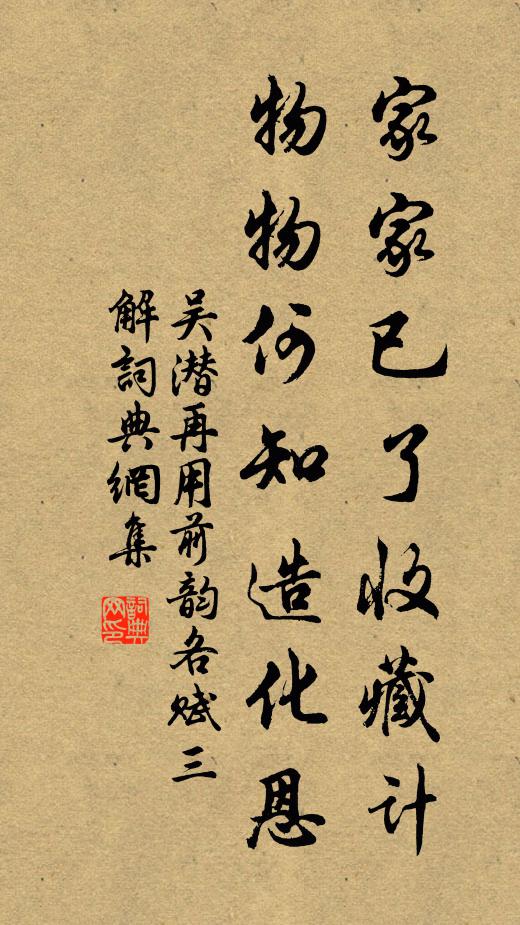 家家已了收藏计
物物何知造化恩
吴潜再用前韵各赋三
解詞典網集
詞典网印